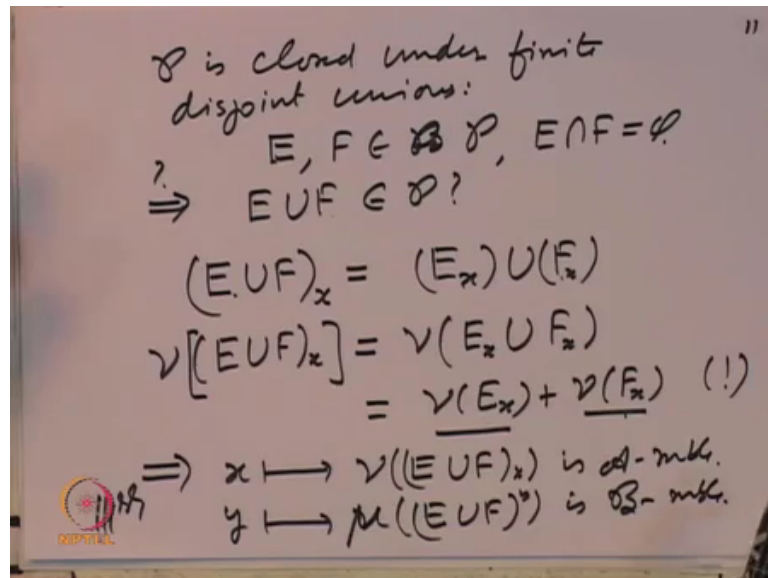 11
𝒫 is closed under finite
disjoint unions:
E, F ∈ 𝒫, E ∩ F = φ.
?
⇒ E ∪ F ∈ 𝒫?
(E ∪ F)ₓ = (Eₓ) ∪ (Fₓ)
ν[(E ∪ F)ₓ] = ν(Eₓ ∪ Fₓ)
= ν(Eₓ) + ν(Fₓ) (!)
⇒ x ⟼ ν((E ∪ F)ₓ) is 𝒜-mble.
y ⟼ μ((E ∪ F)ʸ) is ℬ-mble.
NPTEL